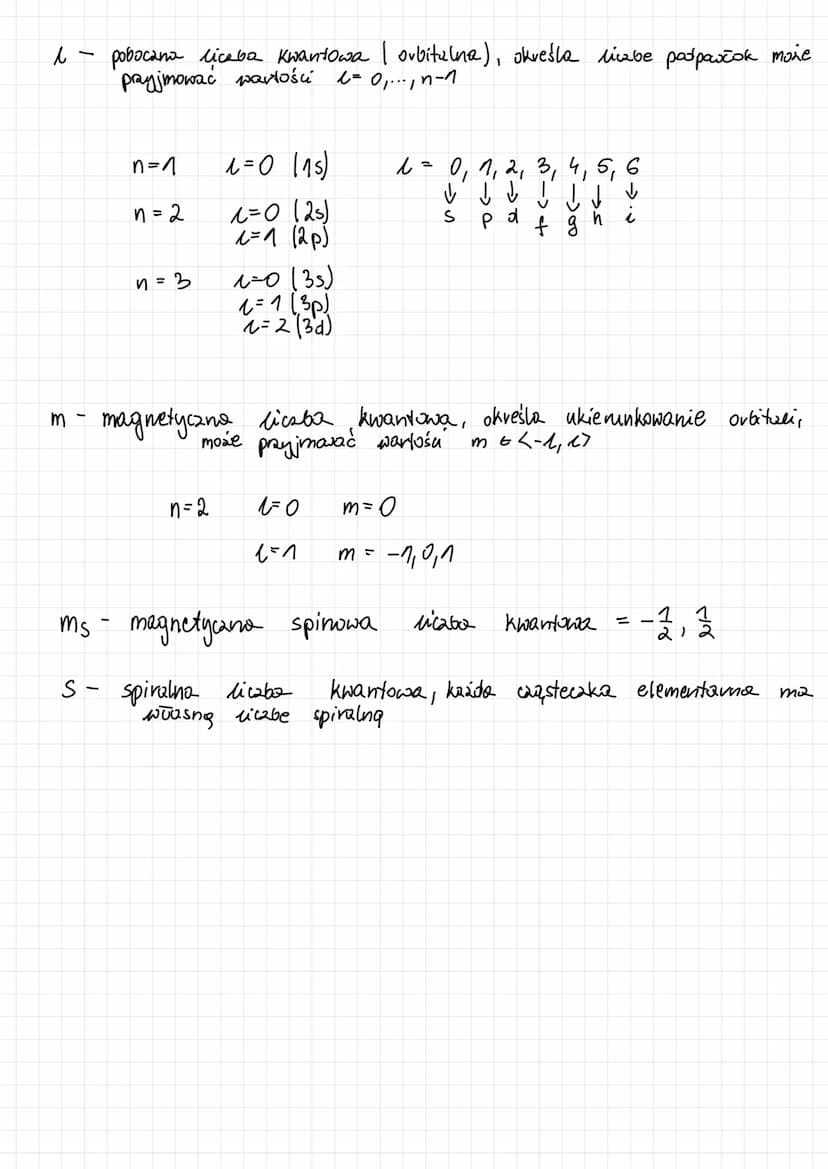 l - poboczna liczba kwantowa (orbitalna), określa liczbe podpowłok może
przyjmować wartości l = 0,...,n-1
n=1 l=0 (1s) l = 0, 1, 2, 3, 4, 5, 6
↓ ↓ ↓ ↓ ↓ ↓ ↓
n = 2 l=0 (2s) s p d f g h i
l=1 (2p)
n = 3 l=0 (3s)
l=1 (3p)
l=2 (3d)
m - magnetyczna liczba kwantowa, określa ukierunkowanie orbitali,
może przyjmować wartości m ∈ <-l, l>
n=2 l=0 m=0
l=1 m = -1, 0, 1
ms - magnetyczna spinowa liczba kwantowa = -1/2, 1/2
S - spiralna liczba kwantowa, każda cząsteczka elementarna ma
własną liczbe spiralną